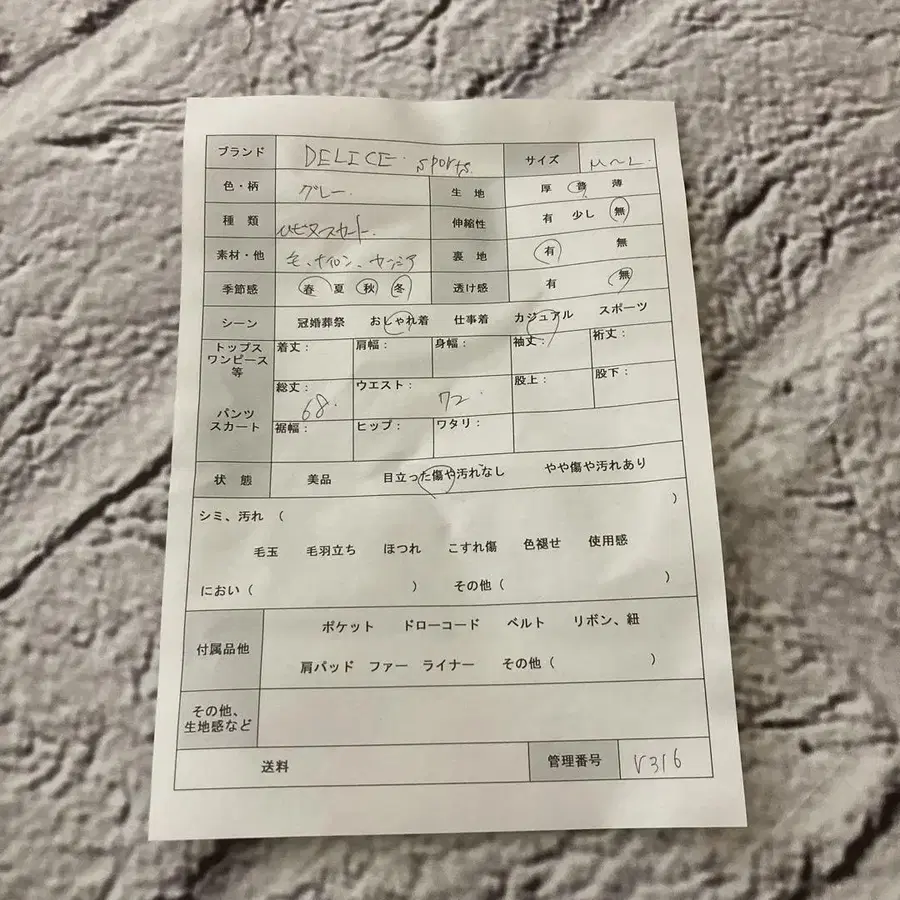 ブランド DELICE. sports. サイズ M〜L.
色・柄 グレー. 生地 厚 普 薄
種類 ひざ丈スカート. 伸縮性 有 少し 無
素材・他 毛、ナイロン、 裏地 有 無
季節感 春 夏 秋 冬 透け感 有 無
シーン 冠婚葬祭 おしゃれ着 仕事着 カジュアル スポーツ
トップス ワンピース 等 着丈: 肩幅: 身幅: 袖丈: 裄丈:
パンツ スカート 総丈: 68. ウエスト: 72. 股上: 股下:
裾幅: ヒップ: ワタリ:
状態 美品 目立った傷や汚れなし やや傷や汚れあり
シミ、汚れ ( )
毛玉 毛羽立ち ほつれ こすれ傷 色褪せ 使用感
におい ( ) その他 ( )
付属品他 ポケット ドローコード ベルト リボン、紐
肩パッド ファー ライナー その他 ( )
その他、
生地感など
送料 管理番号 V316